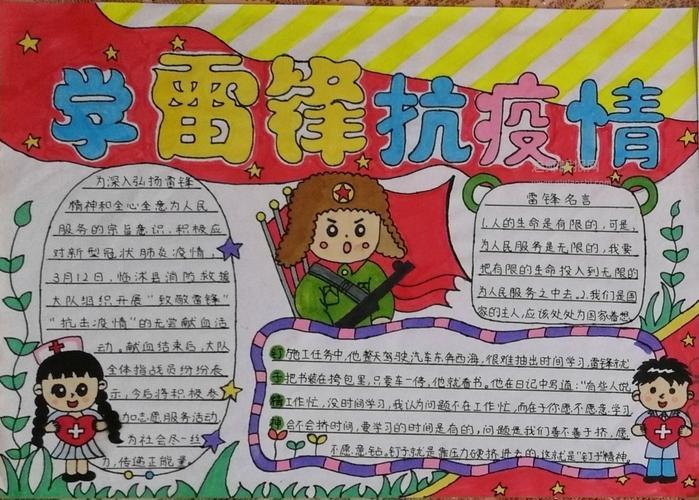 学雷锋抗疫情
为深入弘扬雷锋
精神和全心全意为人民
服务的宗旨意识，积极应
对新型冠状肺炎疫情，
3月12日，临沭县消防救援
大队组织开展“致敬雷锋”
“抗击疫情”的无尝献血活
动。献血结束后，大队
全体指战员纷纷表
示，今后将积极参
加志愿服务活动，
为社会尽一丝
力，传递正能量。
雷锋名言
1.人的生命是有限的，可是，
为人民服务是无限的，我要
把有限的生命投入到无限的
为人民服务之中去。2.我们是国
家的主人，应该处处为国家着想
钉子精神
施工任务中，他整天驾驶汽车东奔西海，很难抽出时间学习，雷锋就
把书装在挎包里，只要车一停，他就看书。他在日记中写道：“有些人说
工作忙，没时间学习，我认为问题不在工作忙，而在于你愿不愿意学习
会不会挤时间，要学习的时间是有的，问题是我们善不善于挤，愿
不愿意钻。钉子就是靠压力硬挤进去的，这就是“钉子”精神。